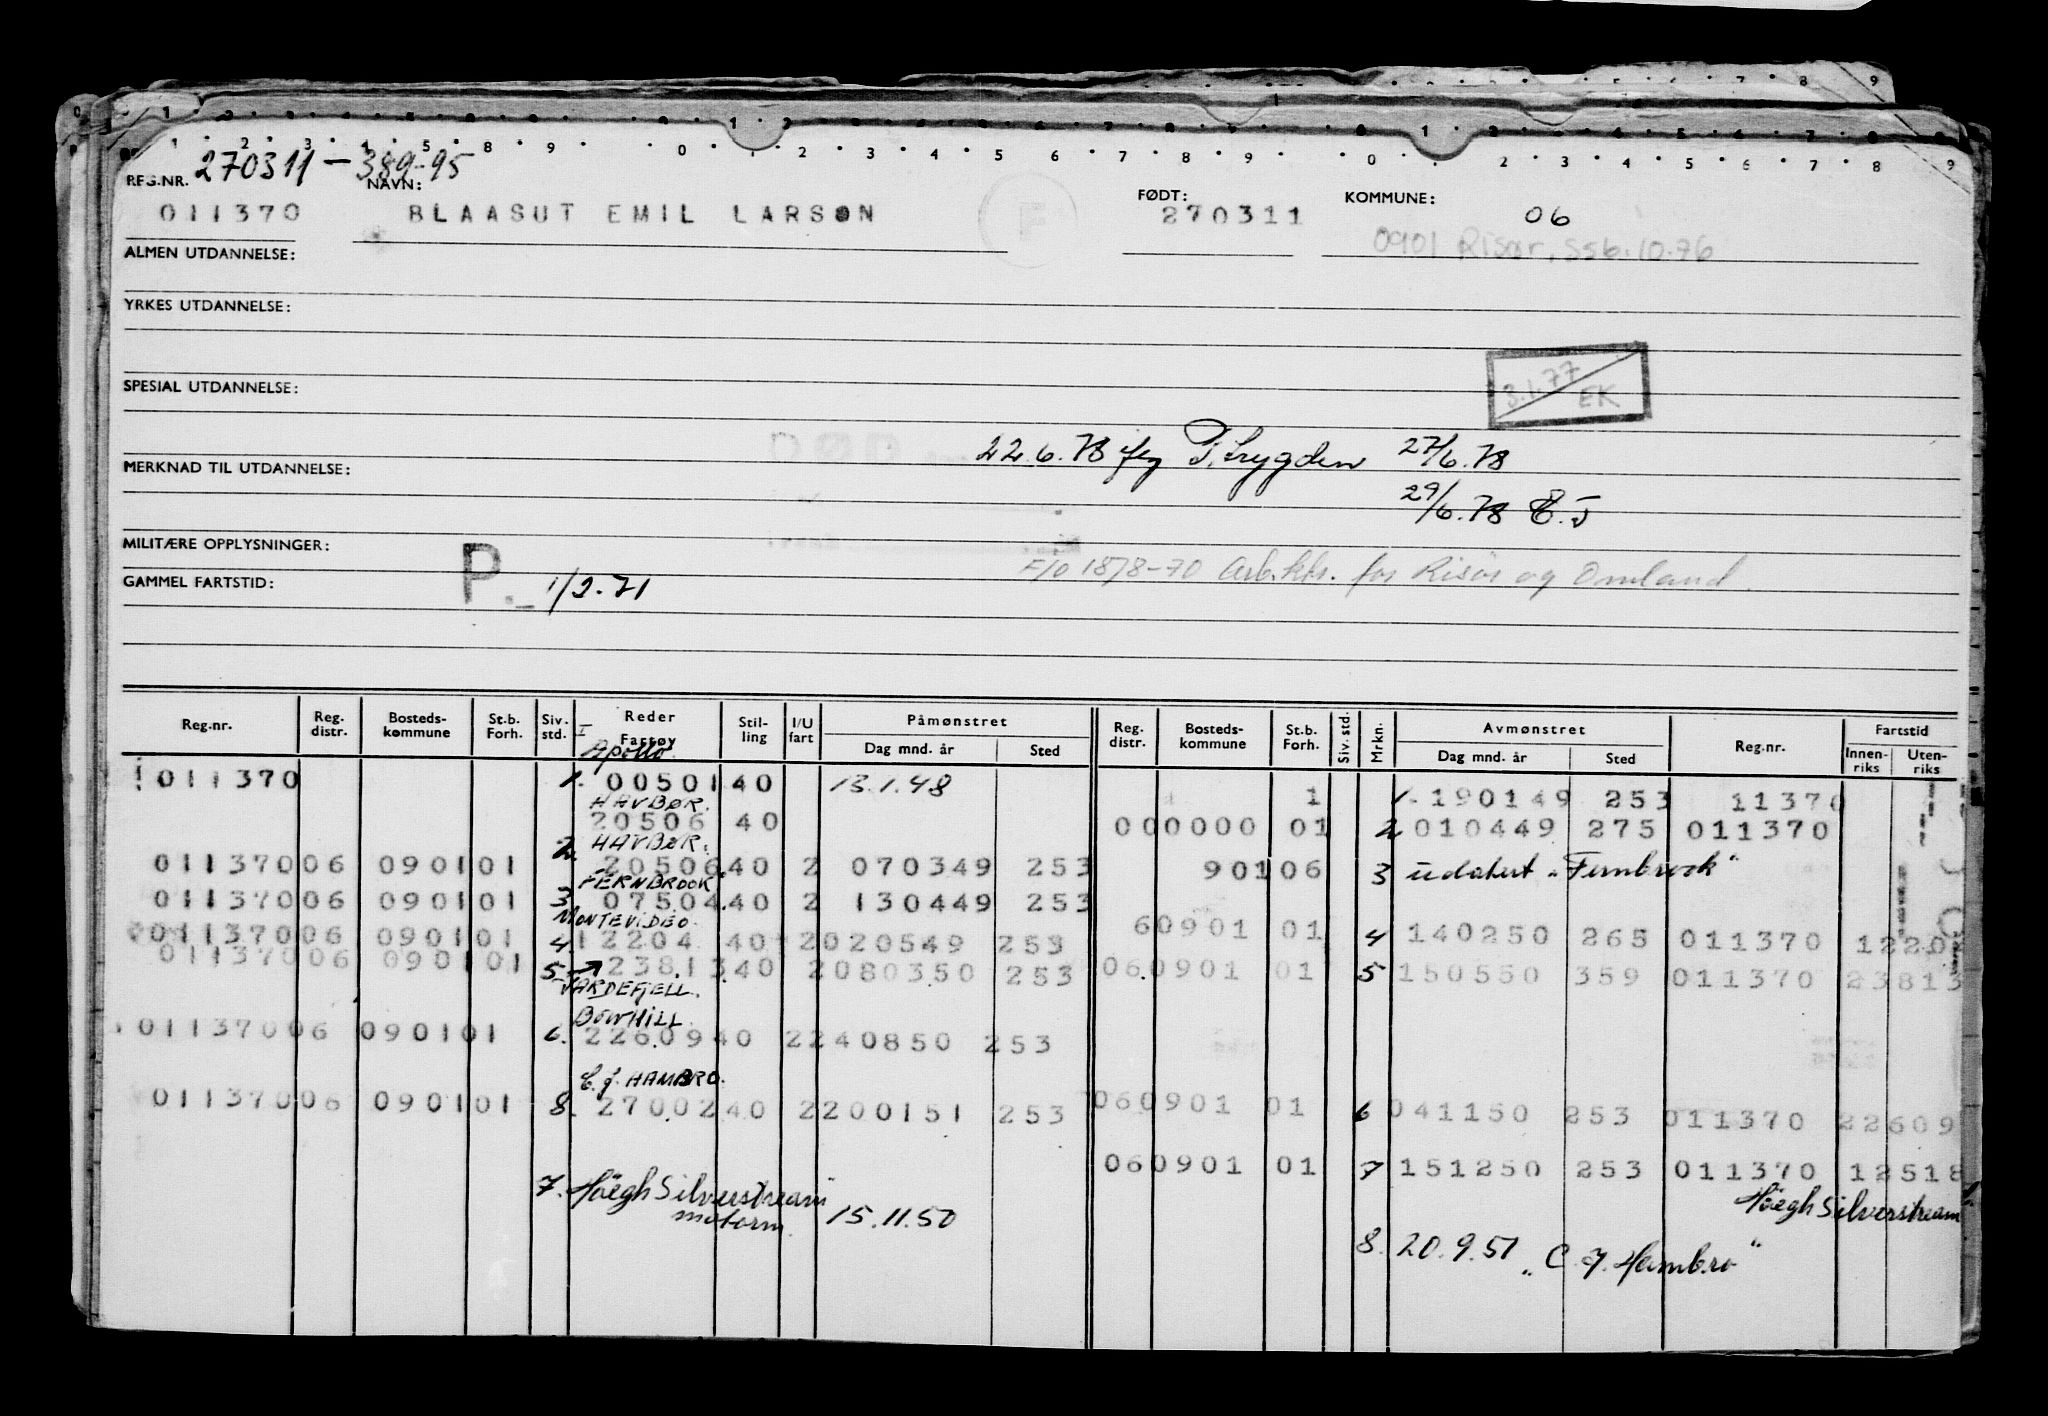 REG.NR. 270311-389-95 NAVN: FØDT: KOMMUNE:
011370 BLAASUT EMIL LARSON F 270311 06
0901 Risør, Ssb.10.76
ALMEN UTDANNELSE:
YRKES UTDANNELSE:
3.1.77 EK
SPESIAL UTDANNELSE:
22.6.78 27/6.78
MERKNAD TIL UTDANNELSE:
29/6.78
MILITÆRE OPPLYSNINGER:
F/O 18/8-70 for Risør og Omland
GAMMEL FARTSTID: P. 1/2-71
Reg.nr. Reg. distr. Bosteds-kommune St.b. Forh. Siv. std. Reder Fartøy Stil-ling I/U fart Påmønstret Dag mnd. år Sted Reg. distr. Bosteds-kommune St.b. Forh. Siv. std. Mrkn. Avmønstret Dag mnd. år Sted Reg.nr. Fartstid Innen-riks Uten-riks
I Apollo
011370 1. 00501 40 13.1.48 1 1. 190149 253 11370
HAVBØR.
20506 40 000000 01 2 010449 275 011370
HAVBØR.
011370 06 0901 01 2. 20506 40 2 070349 253 901 06 3 "Fernbrook"
FERNBROOK
011370 06 0901 01 3 07504 40 2 130449 253
MONTEVIDEO.
011370 06 0901 01 4 12204 40 2 020549 253 60901 01 4 140250 265 011370 1220
011370 06 0901 01 5 23813 40 2 080350 253 060901 01 5 150550 359 011370 23813
VARDEFJELL.
BOWHILL.
011370 06 0901 01 6. 22609 40 2 240850 253
C.J. HAMBRO.
011370 06 0901 01 8. 27002 40 2 200151 253 060901 01 6 041150 253 011370 22609
060901 01 7 151250 253 011370 12518
7. Höegh Silverstream 15.11.50 Höegh Silverstream
motorm.
8. 20.9.51 "C.J. Hambro"